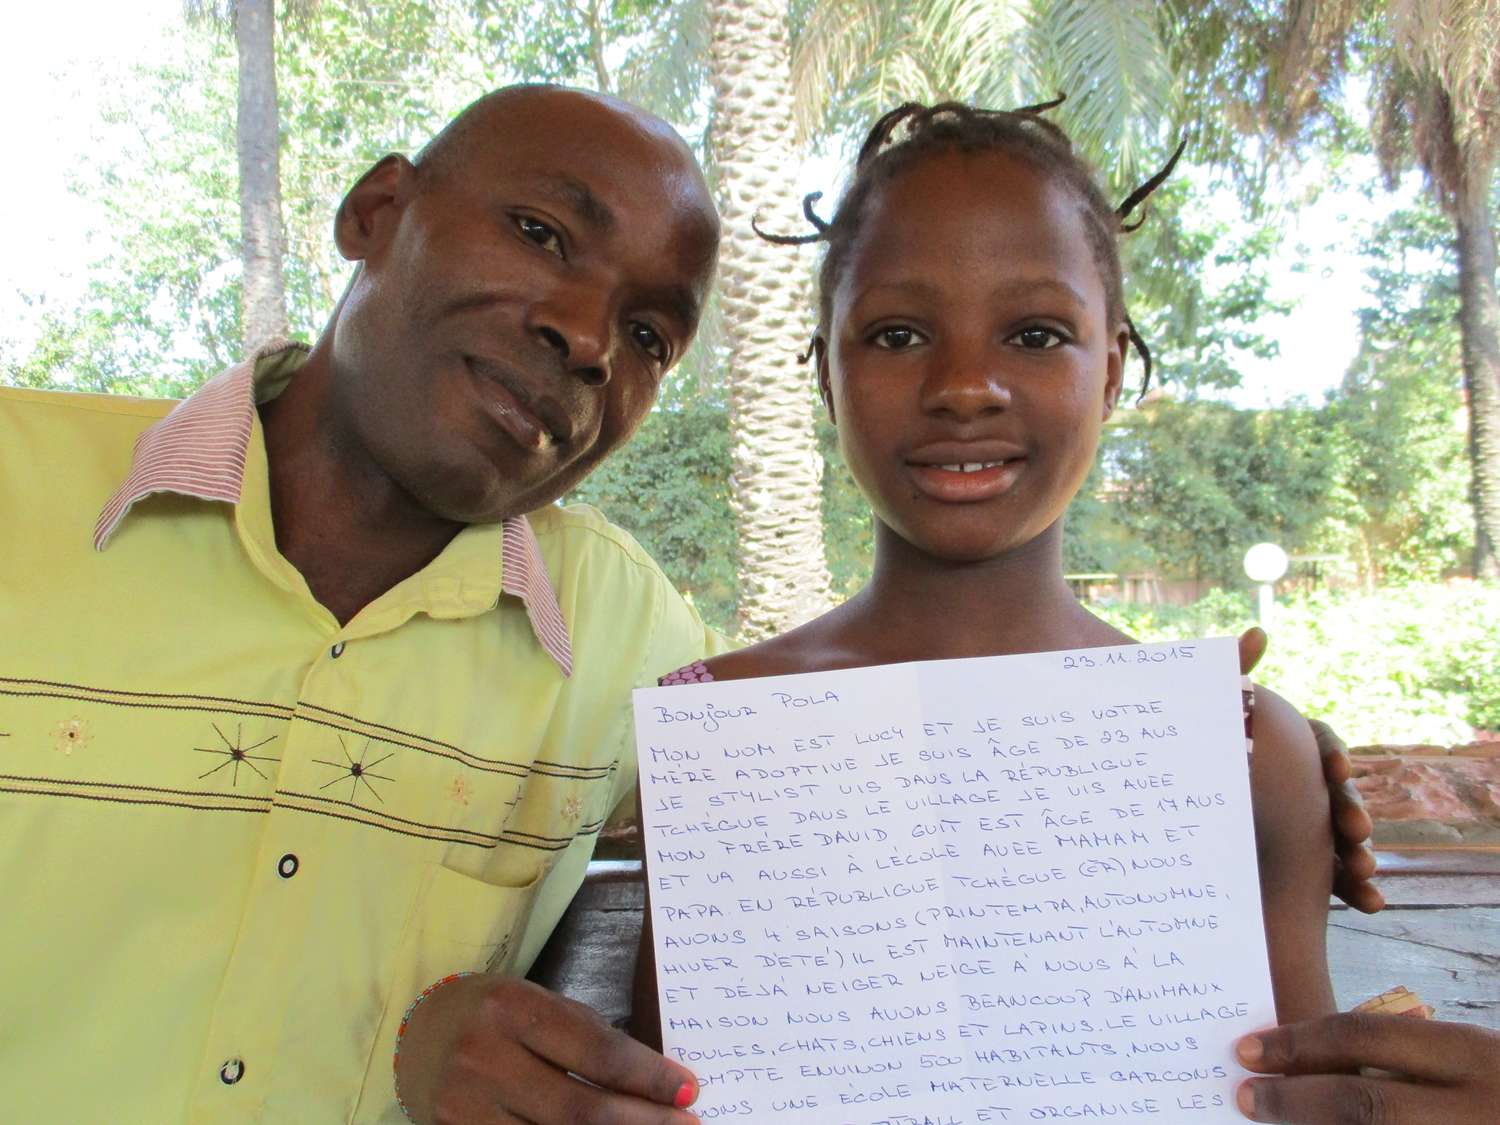 23.11.2015
BONJOUR POLA
MON NOM EST LUCY ET JE SUIS VOTRE
MÈRE ADOPTIVE JE SUIS ÂGE DE 23 AUS
JE STYLIST VIS DAUS LA RÉPUBLIQUE
TCHÉGUE DAUS LE VILLAGE JE VIS AVEE
MON FRÉRE DAVID GUIT EST ÂGE DE 17 AUS
ET VA AUSSI À LÉCOLE AVEE MAMAM ET
PAPA. EN RÉPUBLIGUE TCHÉGUE (ČR) NOUS
AVONS 4 SAISONS (PRINTEMPA, AUTONUMNE,
HIVER D'ETÉ) IL EST MAINTENANT L'AUTOMNE
ET DÉJÁ NEIGER NEIGE Á NOUS Á LA
MAISON NOUS AVONS BEANCOUP D'ANIMANX
POULES, CHATS, CHIENS ET LAPINS. LE VILLAGE
OMPTE ENVINON 500 HABITANTS. NOUS
VONS UNE ÉCOLE MATERNELLE GARCONS
ET ORGANISE LES